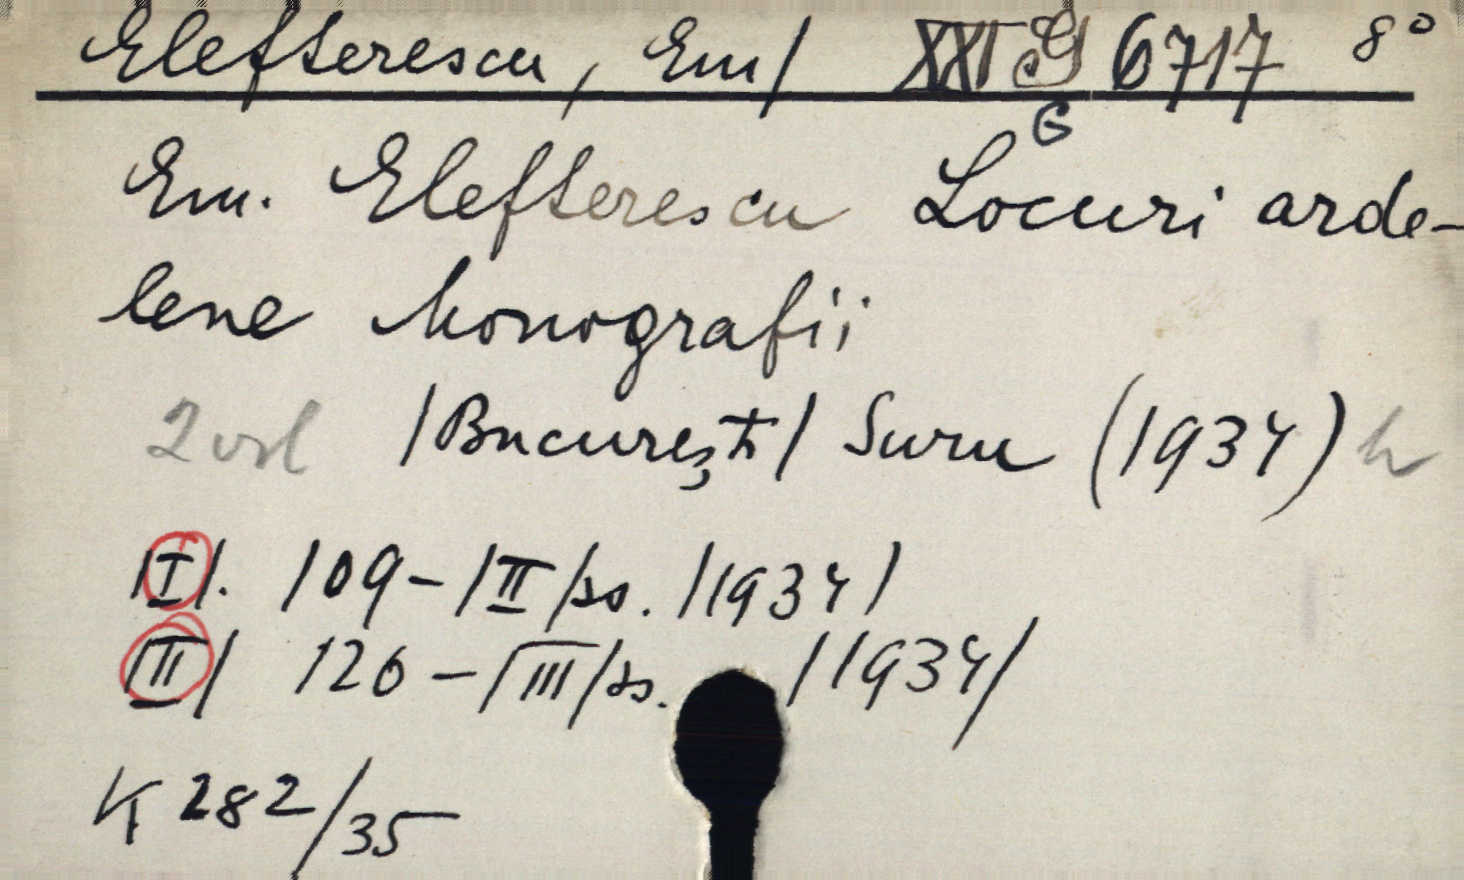 Elefterescu, Em/ XXI G 6717 8°
G
Em. Elefterescu Locuri arde-
lene Monografii
2 vol /București/ Suru (1934) h
/I/. 109-/II/ss. /1934/
/II/ 126-/III/ss. /1934/
K 282/35